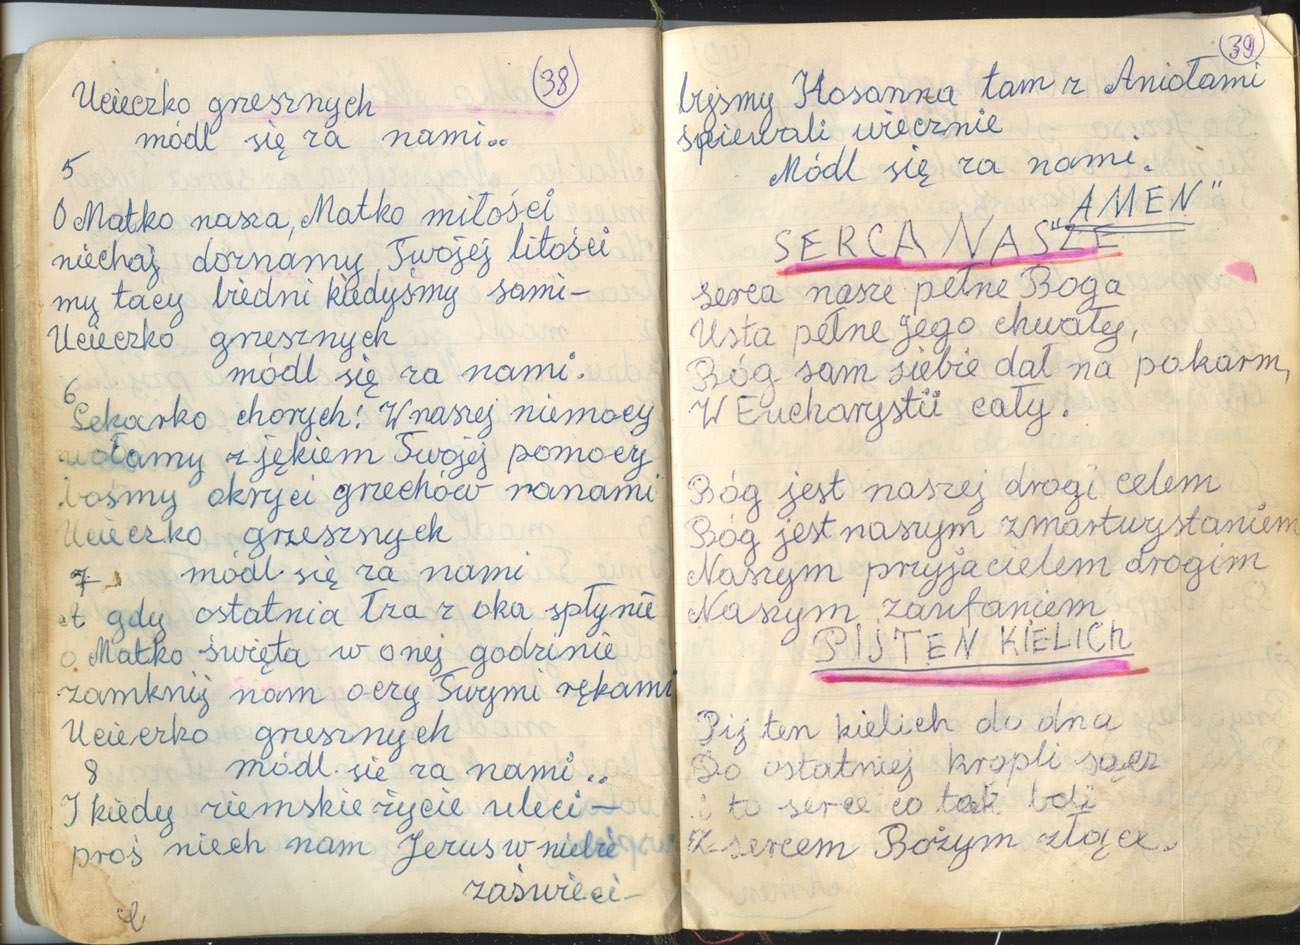 38
Ucieczko grzesznych
módl się za nami..
5
O Matko nasza, Matko miłości
niechaj doznamy Twojej litości
my tacy biedni kiedyśmy sami-
Ucieczko grzesznych
módl się za nami.
6
Lekarko chorych! W naszej niemocy
wołamy z jękiem Twojej pomocy
bośmy okryci grzechów ranami
Ucieczko grzesznych
módl się za nami
7
A gdy ostatnia łza z oka spłynie
o Matko święta w onej godzinie
zamknij nam oczy Twymi rękami
Ucieczko grzesznych
módl się za nami..
8
I kiedy ziemskie życie uleci-
proś niech nam Jezus w niebie
zaświeci-
39
byśmy Hosanna tam z Aniołami
spiewali wiecznie
Módl się za nami.
"AMEN"
SERCA NASZE
serca nasze pełne Boga
Usta pełne jego chwały,
Bóg sam siebie dał na pokarm,
W Eucharystii cały.
Bóg jest naszej drogi celem
Bóg jest naszym zmartwystaniem
Naszym przyjacielem drogim
Naszym zaufaniem
PIJ TEN KIELICH
Pij ten kielich do dna
Do ostatniej kropli sącz
i to serce co tak boli
Z sercem Bożym złącz.